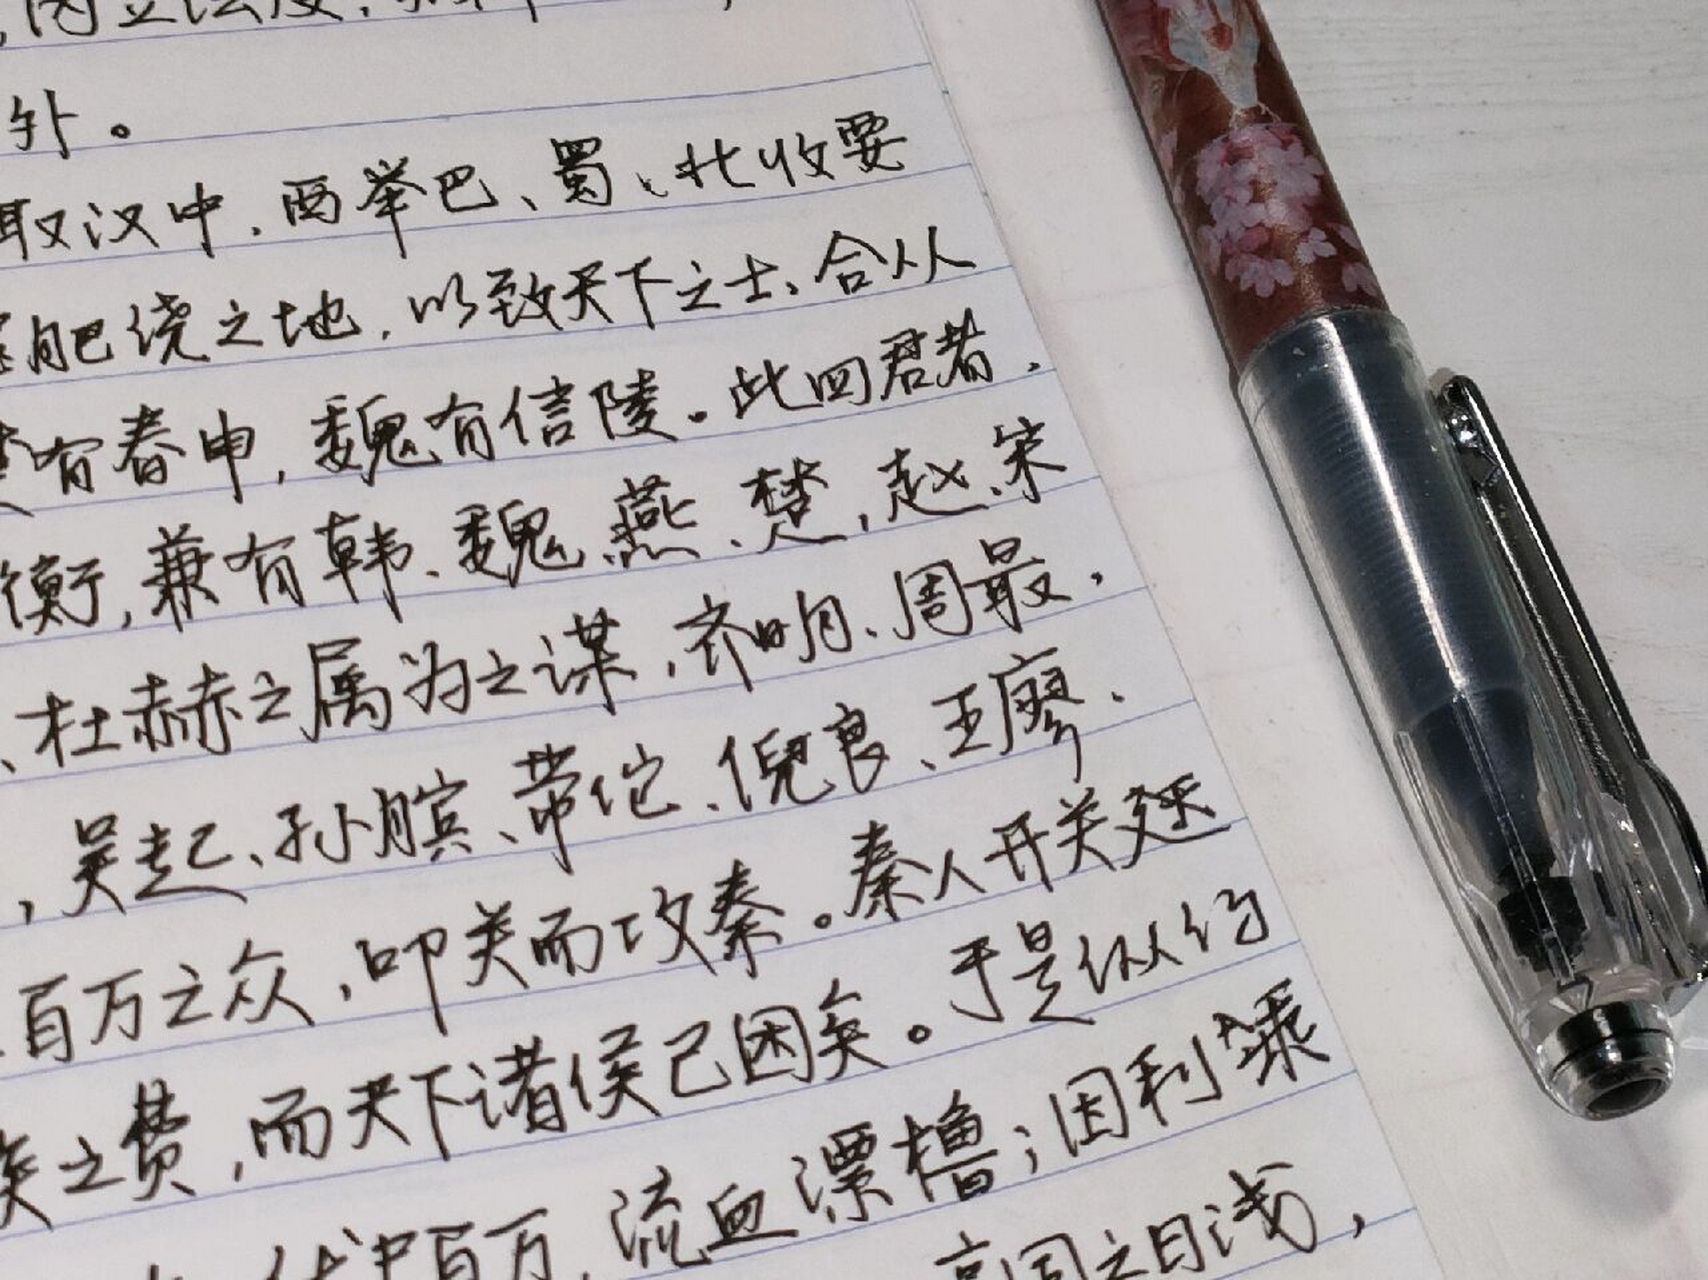 内立法度,
外。
取汉中,西举巴、蜀、北收要
肥饶之地,以致天下之士、合从
有春申,魏有信陵。此四君者,
衡,兼有韩、魏、燕、楚,赵、宋
、杜赫之属为之谋,齐明、周最,
,吴起、孙膑、带佗、倪良、王廖、
百万之众,叩关而攻秦。秦人开关延
矢之费,而天下诸侯已困矣。于是从约
伏尸百万,流血漂橹;因利乘
享国之日浅,